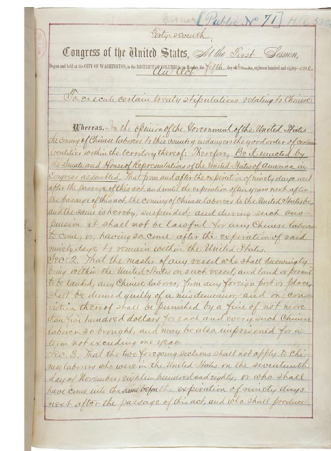 [Public No 71]
Forty-seventh
Congress of the United States, At the First Session,
Begun and held at the CITY OF WASHINGTON, in the DISTRICT OF COLUMBIA, on Monday, the fifth day of December, eighteen hundred and eighty-one.
An Act
To execute certain treaty stipulations relating to Chinese.
Whereas, In the opinion of the Government of the United States
the coming of Chinese laborers to this country endangers the good order of certain
localities within the territory thereof: Therefore, Be it enacted by
the Senate and House of Representatives of the United States of America in
Congress assembled, That from and after the expiration of ninety days next
after the passage of this act, and until the expiration of ten years next after
the passage of this act, the coming of Chinese laborers to the United States be,
and the same is hereby, suspended; and during such sus-
pension it shall not be lawful for any Chinese laborer
to come, or, having so come after the expiration of said
ninety days, to remain within the United States.
Sec. 2. That the master of any vessel who shall knowingly
bring within the United States on such vessel, and land or permit
to be landed, any Chinese laborer, from any foreign port or place,
shall be deemed guilty of a misdemeanor, and on con-
viction thereof shall be punished by a fine of not more
than five hundred dollars for each and every such Chinese
laborer so brought, and may be also imprisoned for a
term not exceeding one year.
Sec. 3. That the two foregoing sections shall not apply to Chi-
nese laborers who were in the United States on the seventeenth
day of November, eighteen hundred and eighty, or who shall
have come into the same before the expiration of ninety days
next after the passage of this act, and who shall produce